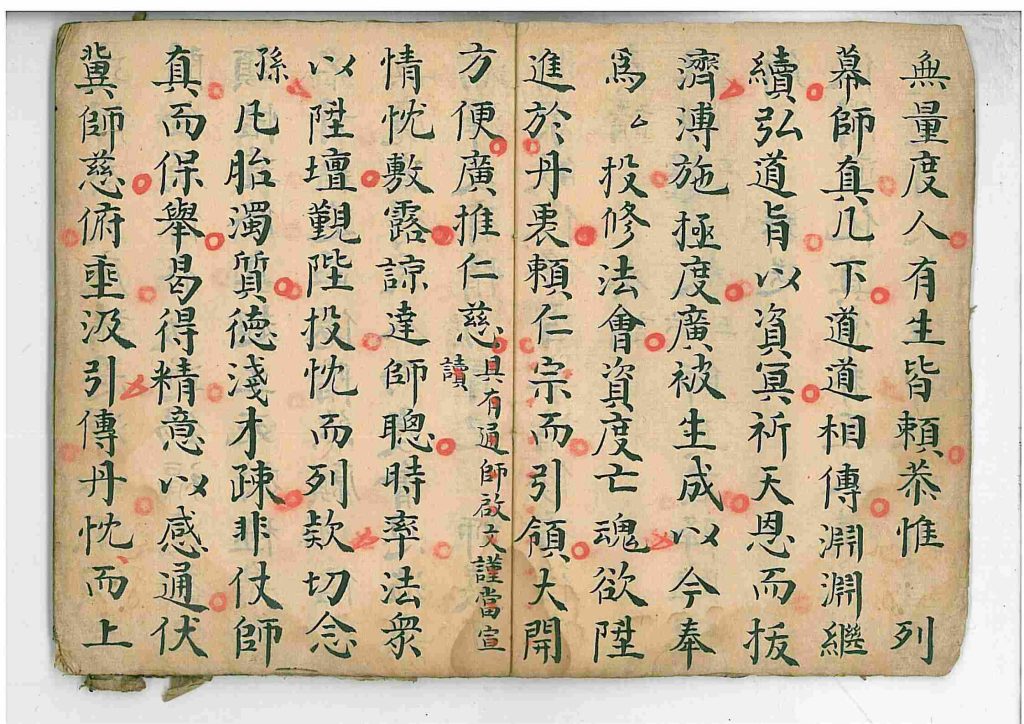 無量度人有生皆頼恭惟　列
幕師真几下道道相傳淵淵繼
續弘道旨以資冥祈天恩而拔
濟溥施極度廣被生成以今奉
爲ㄙ投修法會資度亡魂欲陞
進於丹𮖐頼仁宗而引領大開
方便廣推仁慈具有通師啟文謹當宣
讀
情忱敷露諒達師聰時率法衆
以陞壇覲陛投忱而列欵切念
孫凡胎濁質德淺才疎非仗師
真而保舉曷得精意以感通伏
冀師慈俯垂汲引傳丹忱而上